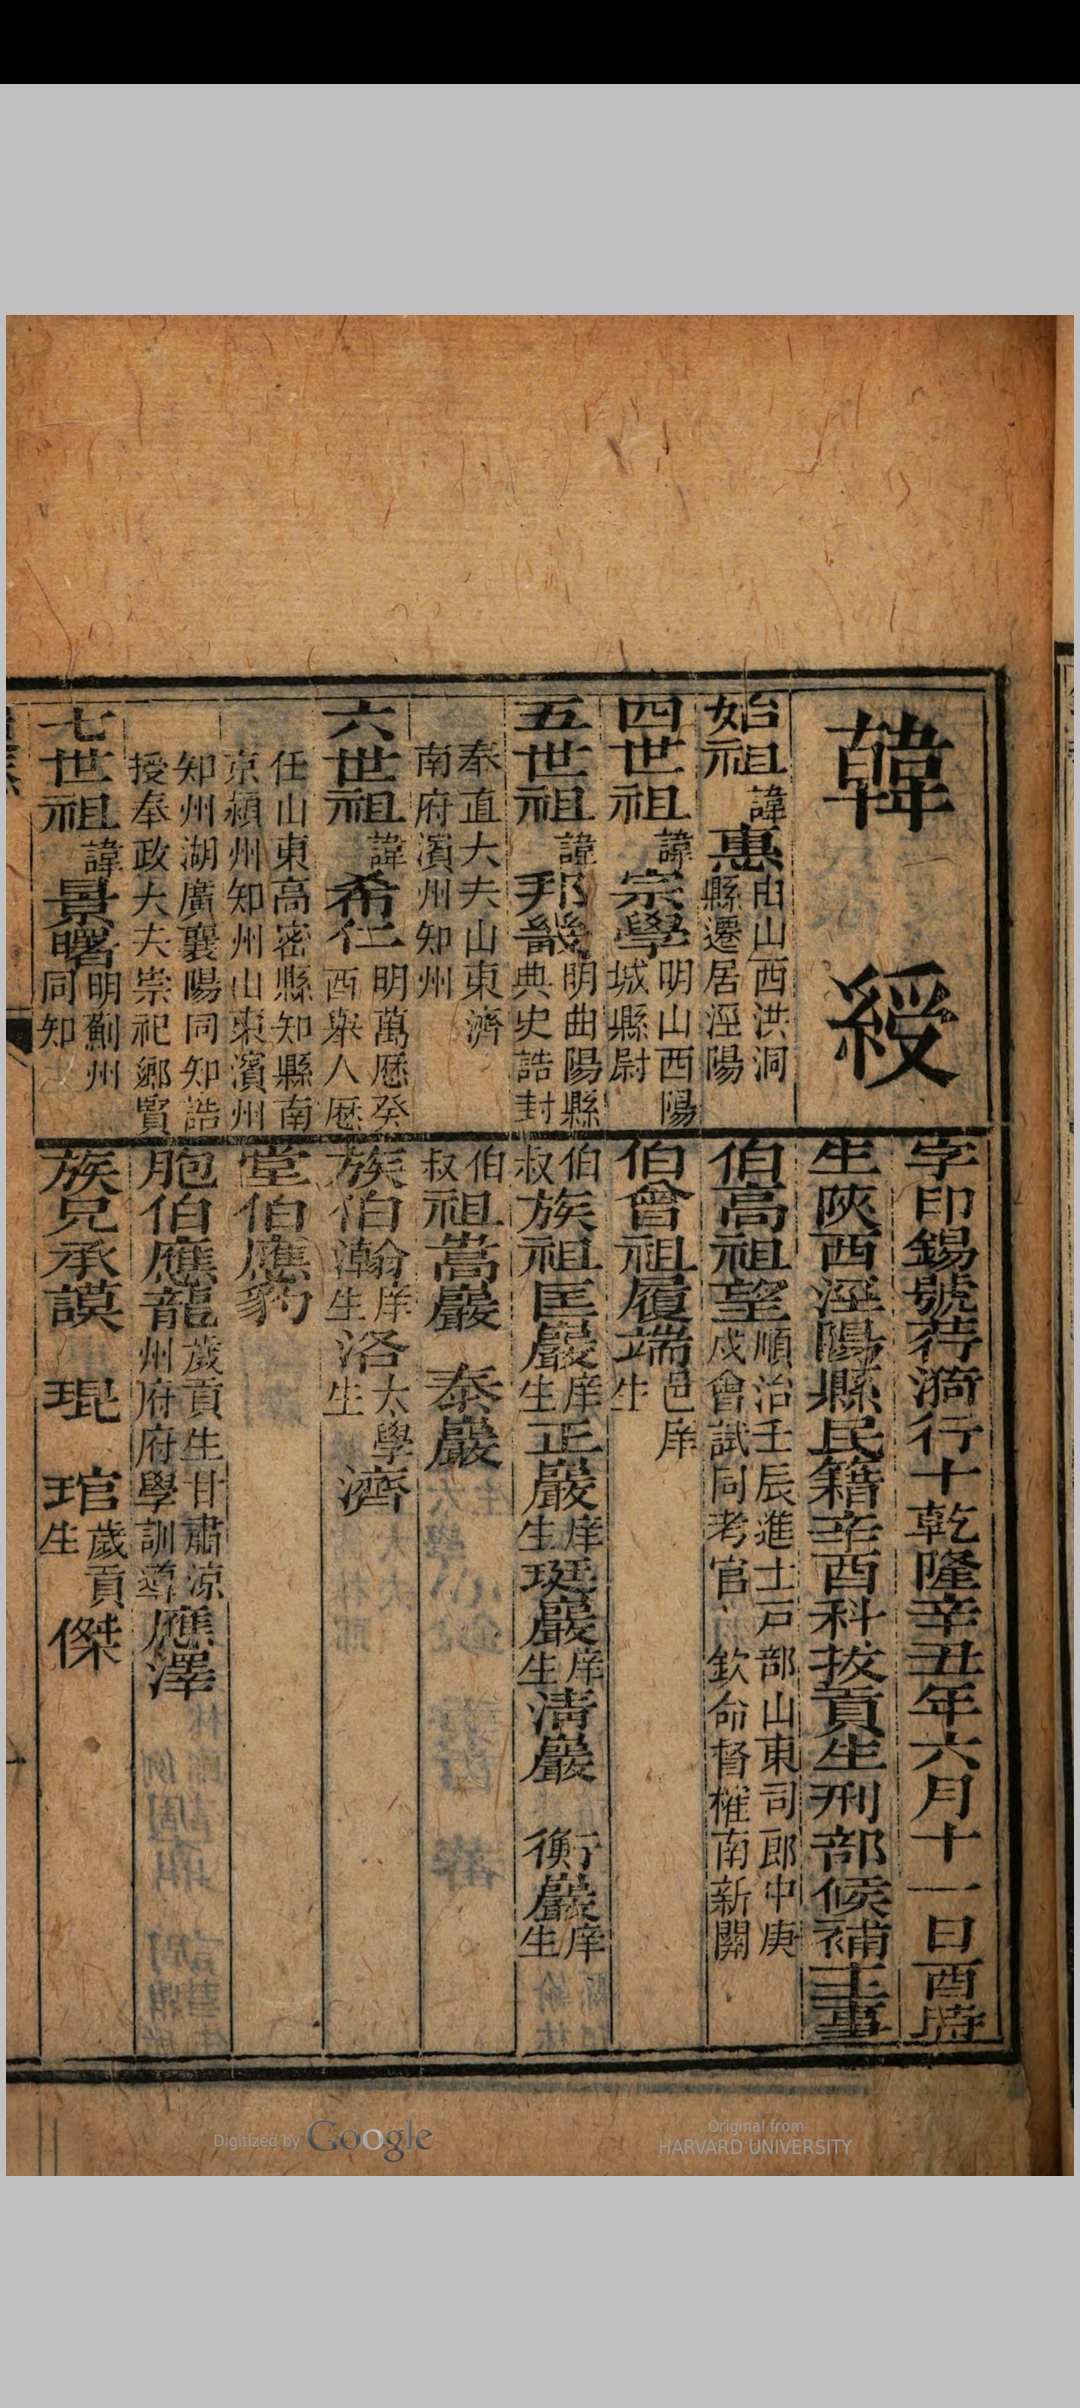 韓綬
字印錫號荇漪行十乾隆辛丑年六月十一日酉時
生陜西涇陽縣民籍辛酉科拔貢生刑部候補主事
始祖諱惠由山西洪洞縣遷居涇陽
四世祖諱宗學明山西陽城縣尉
五世祖諱邦畿明曲陽縣典史誥封
奉直大夫山東濟南府濱州知州
六世祖諱希仁明萬歷癸酉舉人歷
任山東高密縣知縣南京潁州知州山東濱州
知州湖廣襄陽同知誥授奉政大夫崇祀鄉賢
七世祖諱景曙明薊州同知
伯高祖望順治壬辰進士戸部山東司郎中庚戍會試同考官欽命督榷南新關
伯曾祖履端邑庠生
伯叔族祖匡巖庠生正巖庠生珽巖庠生淸巖 衡巖庠生
伯叔祖嵩巖 泰巖
族伯瀚庠生洛太學生濟
堂伯應豹
胞伯應龍歲貢生甘肅涼州府府學訓導應澤
族兄承謨 琨 琯歲貢生傑
Digitized by Google
Original from
HARVARD UNIVERSITY